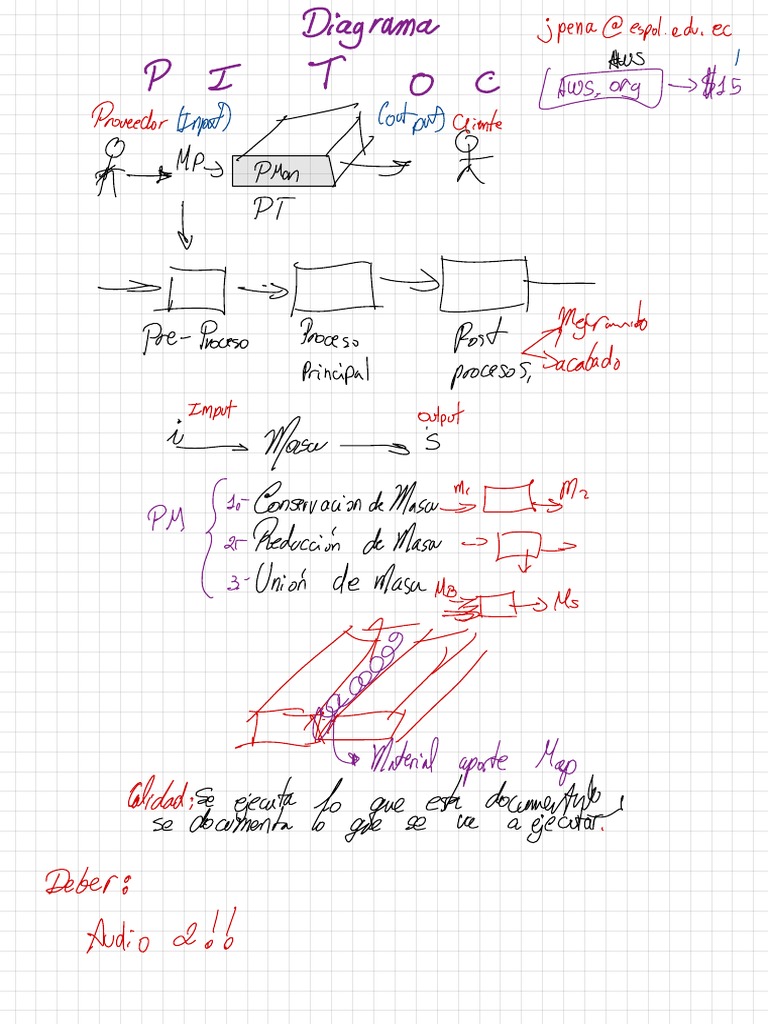 Diagrama
jpena@espol.edu.ec
AWS
P I T O C
AWS.org → $15
Proveedor (Input) (output) Cliente
MP → PMan
PT
Pre-Proceso
Proceso Principal
Post procesos,
acabado
Imput
output
i → Masa → s
PM
1.- Conservación de Masa m1 M2
2.- Reducción de Masa
3.- Unión de masa MB Ms
Material aporte Map
Calidad; se ejecuta lo que esta
se documenta lo que se va a ejecutar.
Deber:
Audio 2!!